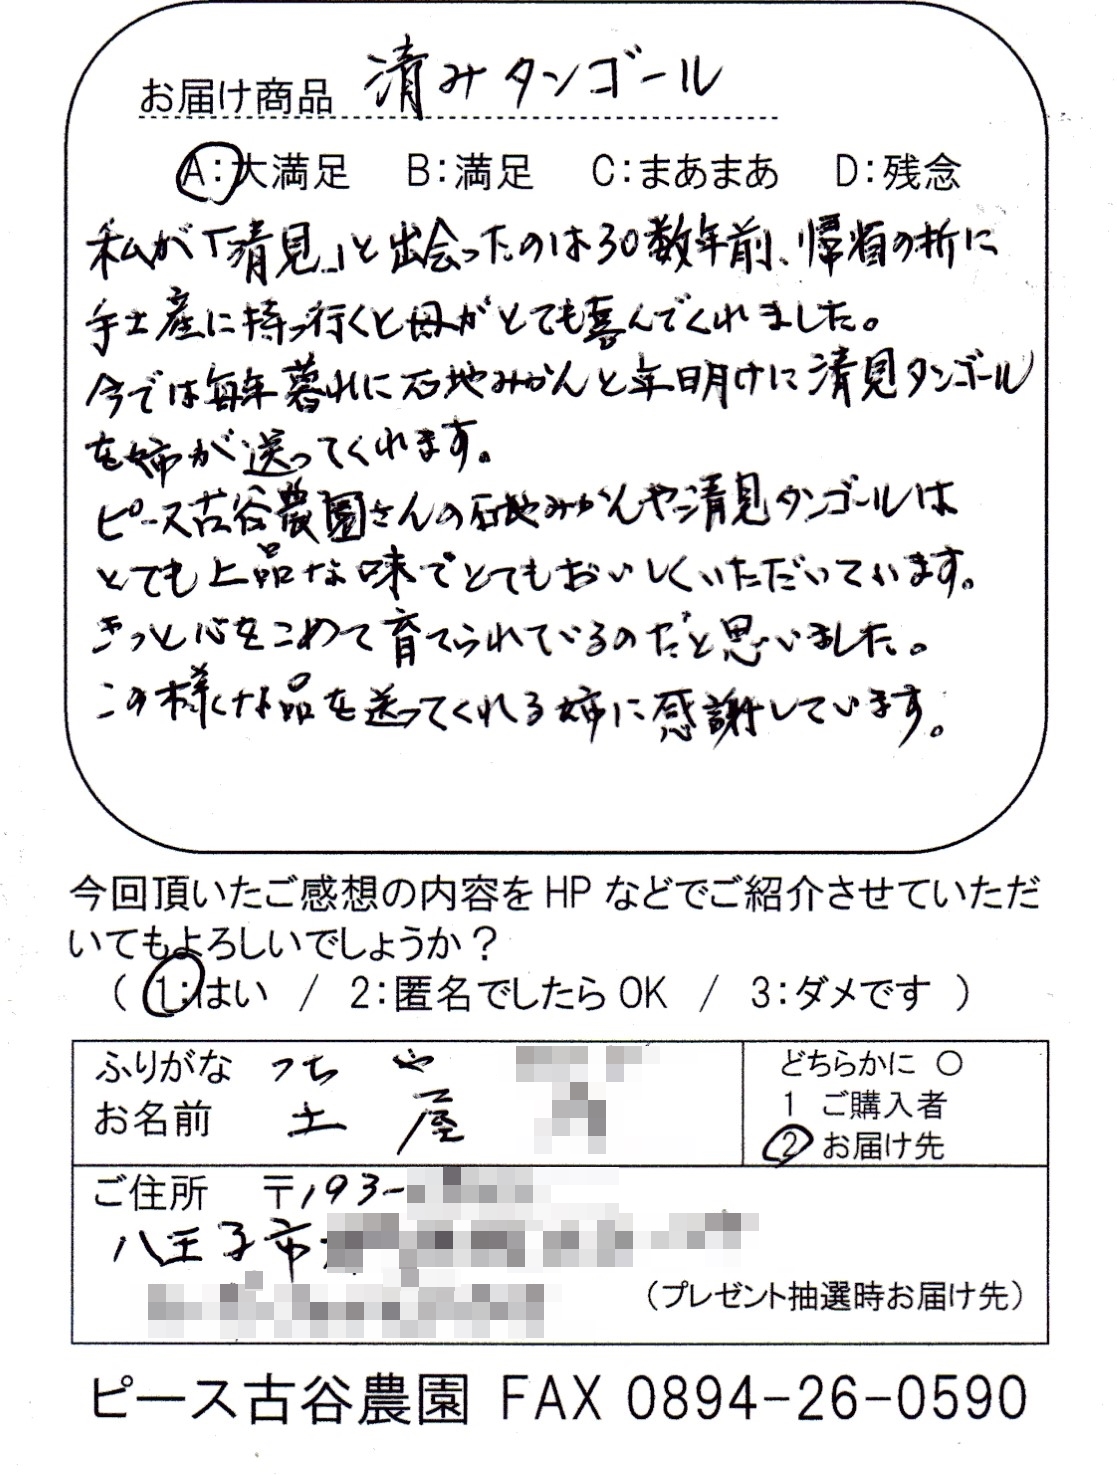 お届け商品 清みタンゴール
A:大満足 B:満足 C:まあまあ D:残念
私が「清見」と出会ったのは30数年前、帰省の折に
手土産に持っ行くと母がとても喜んでくれました。
今では毎年暮れに石地みかんと年明けに清見タンゴール
を姉が送ってくれます。
ピース古谷農園さんの石地みかんや清見タンゴールは
とても上品な味でとてもおいしくいただいています。
きっと心をこめて育てられているのだと思いました。
この様な品を送ってくれる姉に感謝しています。
今回頂いたご感想の内容をHPなどでご紹介させていただ
いてもよろしいでしょうか?
( 1:はい / 2:匿名でしたらOK / 3:ダメです )
ふりがな つち や
お名前 土 屋
どちらかに ○
1 ご購入者
2 お届け先
ご住所 〒193-
八王子市
(プレゼント抽選時お届け先)
ピース古谷農園 FAX 0894-26-0590